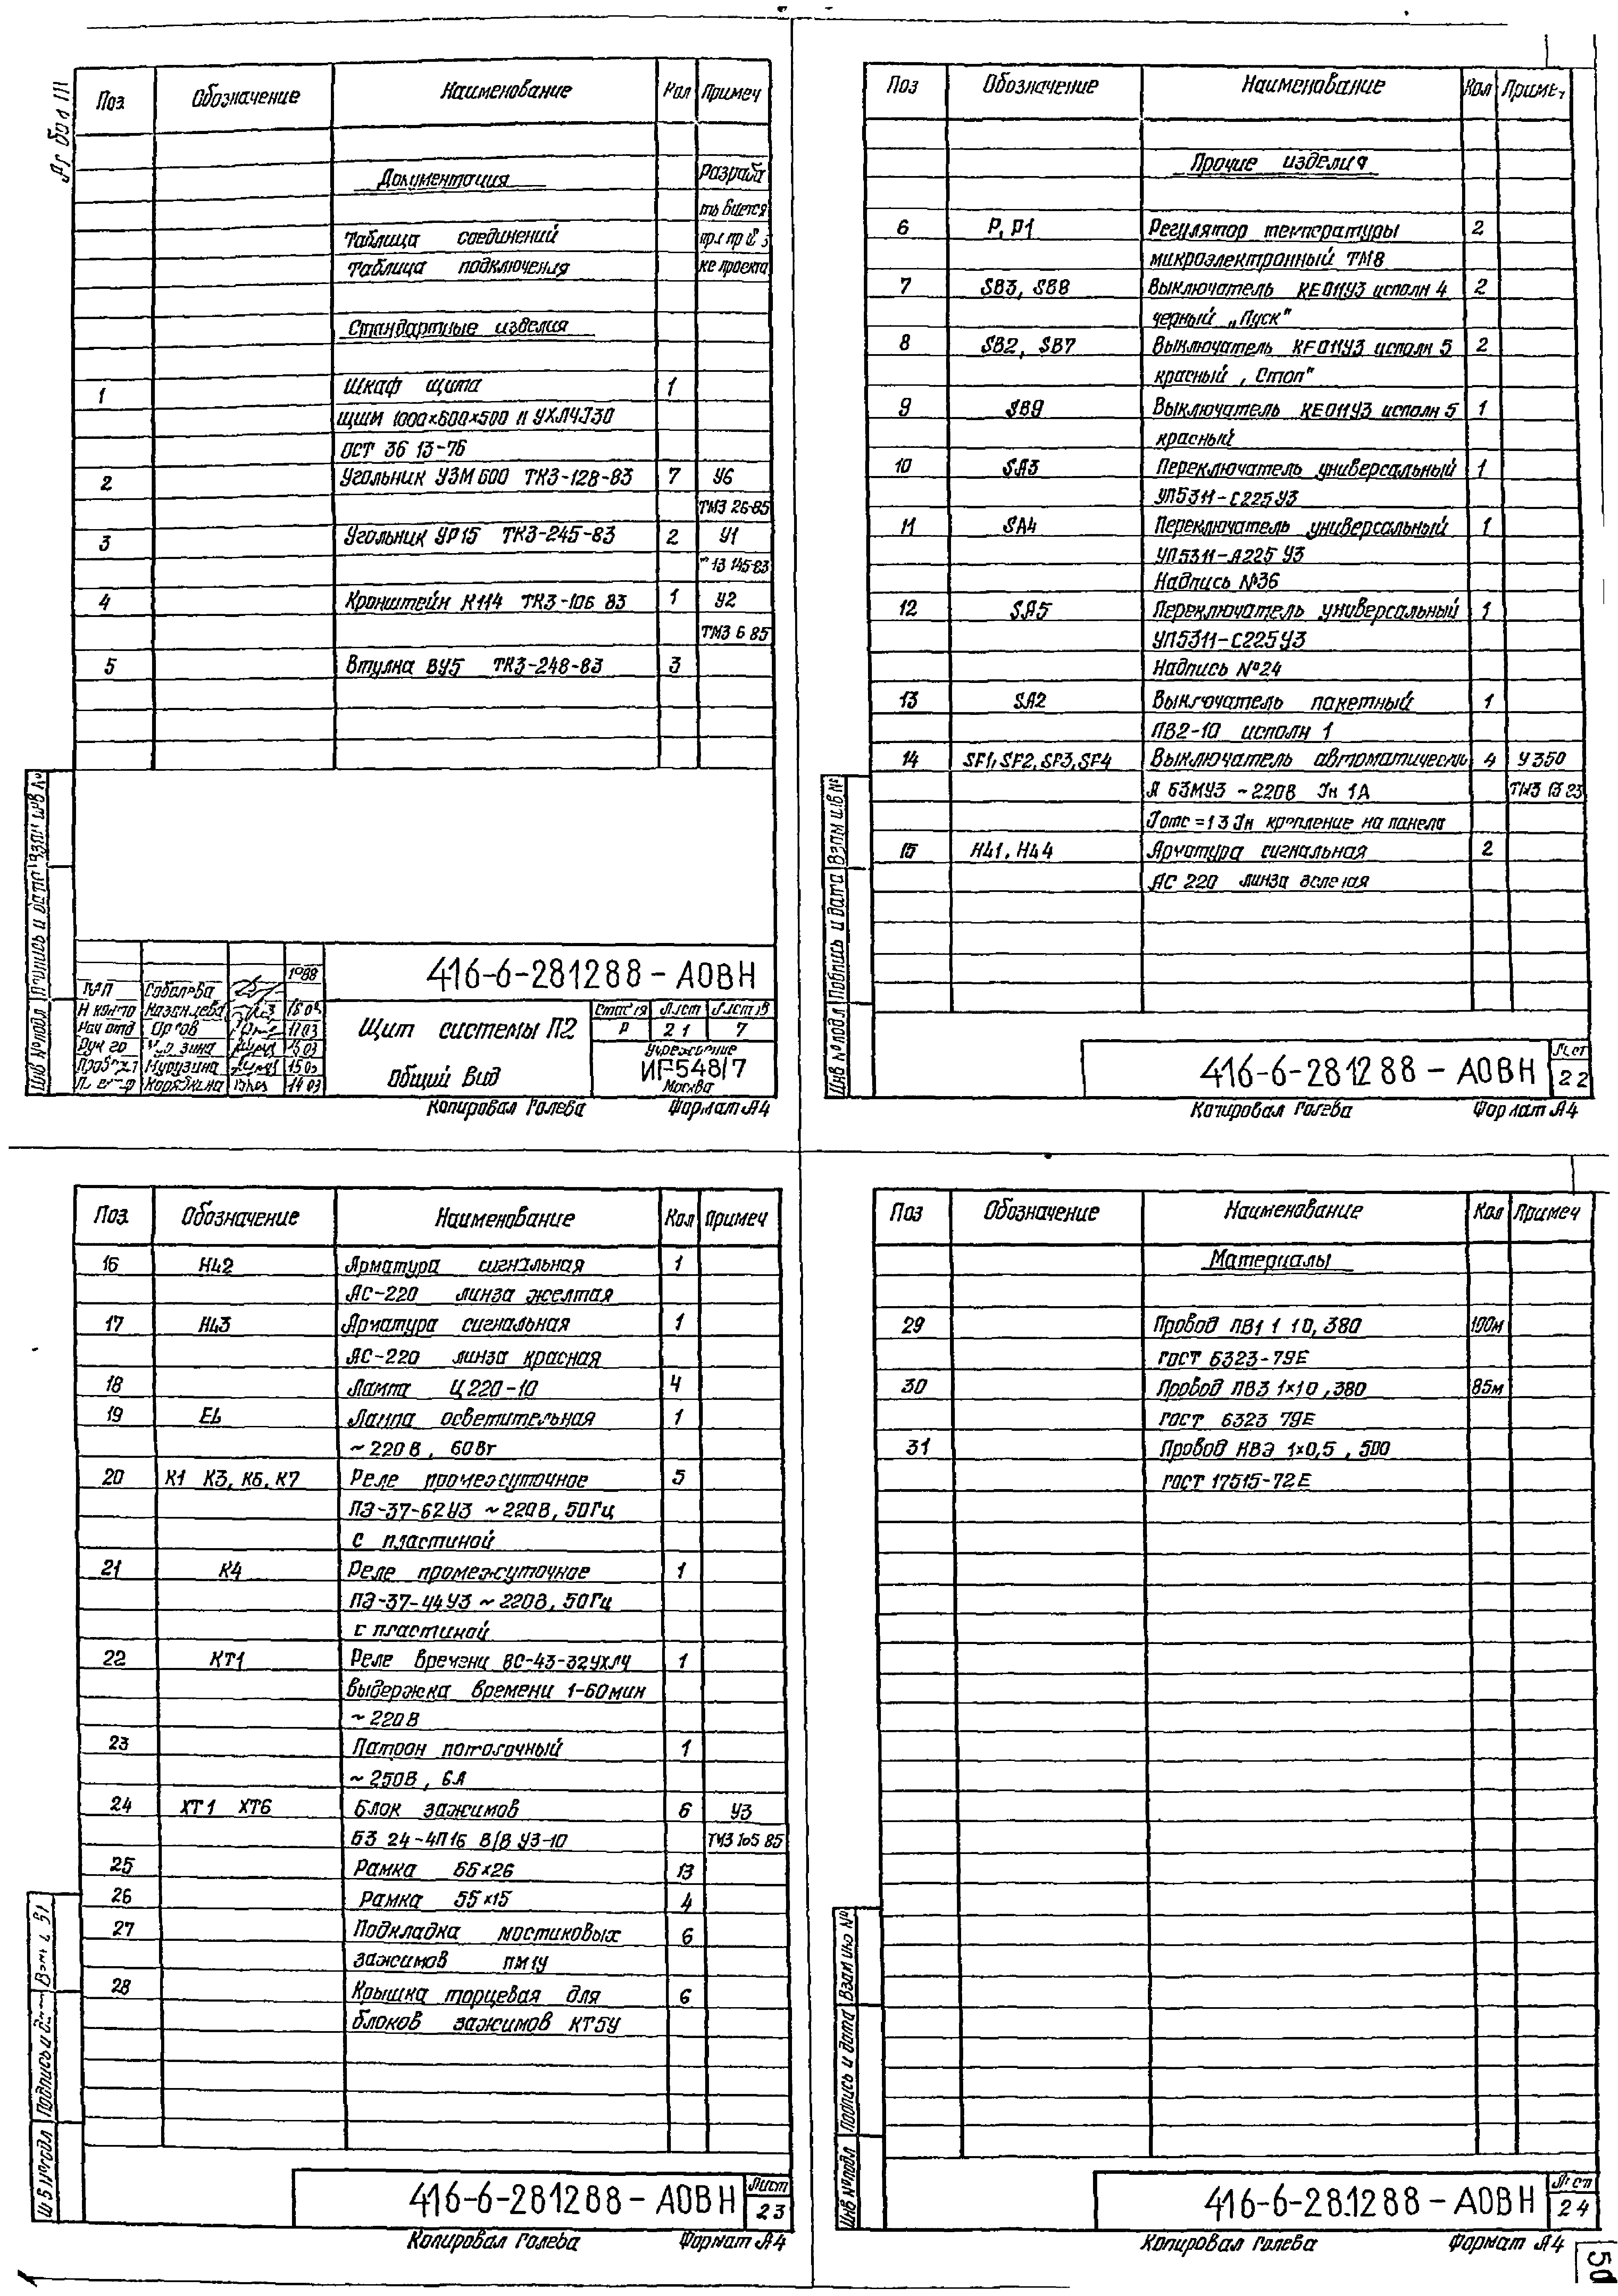 Поз Обозначение Наименование Кол Примеч
Документация Разраба
тывается
Таблица соединений
Таблица подключения ке проекта
Стандартные изделия
1 Шкаф щита 1
ЩШМ 1000×600×500
ОСТ 36 13-76
2 Угольник УЗМ 600 ТК3-128-83 7 У6
ТМ3 26-85
3 Угольник УР15 ТК3-245-83 2 У1
13 145-83
4 Кронштейн К114 ТК3-106 83 1 У2
ТМ3 6 85
5 Втулка ВУ5 ТК3-248-83 3
416-6-281288-АОВН
Щит системы П2
Общий вид
Стадия Лист Листов
Р 21 7
Учреждение
ИГ548/7
Москва
Копировал Голева Формат А4
Поз Обозначение Наименование Кол Примеч
Прочие изделия
6 Р, Р1 Регулятор температуры 2
микроэлектронный ТМ8
7 SB3, SB8 Выключатель КЕ011У3 исполн 4 2
черный „Пуск"
8 SB2, SB7 Выключатель КЕ011У3 исполн 5 2
красный „Стоп"
9 SB9 Выключатель КЕ011У3 исполн 5 1
красный
10 SA3 Переключатель универсальный 1
УП5311-С225У3
11 SA4 Переключатель универсальный 1
УП5311-А225 У3
Надпись №36
12 SA5 Переключатель универсальный 1
УП5311-С225У3
Надпись №24
13 SA2 Выключатель пакетный 1
ПВ2-10 исполн 1
14 SF1, SF2, SF3, SF4 Выключатель автоматически 4 У350
А 63МУ3 ~220В Iн 1А
Iотс = 1 3 Iн крепление на панела
15 HL1, HL4 Арматура сигнальная 2
АС 220 линза зеленая
416-6-281288-АОВН Лист 22
Копировал Голева Формат А4
Поз. Обозначение Наименование Кол Примеч
16 HL2 Арматура сигнальная 1
АС-220 линза желтая
17 HL3 Арматура сигнальная 1
АС-220 линза красная
18 Лампа Ц220-10 4
19 EL Лампа осветительная 1
~220В, 60Вт
20 К1 К3, К5, К7 Реле промежуточное 5
ПЭ-37-62У3 ~220В, 50Гц
с пластиной
21 К4 Реле промежуточное 1
ПЭ-37-44У3 ~220В, 50Гц
с пластиной
22 КТ1 Реле времени ВС-43-32УХЛ4 1
Выдержка времени 1-60мин
~220В
23 Патрон потолочный 1
~250В, 6А
24 ХТ1 ХТ6 Блок зажимов 6 У3
Б3 24-4П16 В/В У3-10 ТМ3 105 85
25 Рамка 66×26 13
26 Рамка 55×15 4
27 Подкладка мостиковых 6
зажимов ПМ1У
28 Крышка торцевая для 6
блоков зажимов КТ5У
416-6-281288-АОВН Лист 23
Копировал Голева Формат А4
Поз Обозначение Наименование Кол Примеч
Материалы
29 Провод ПВ1 1 10, 380 100м
ГОСТ 6323-79Е
30 Провод ПВ3 1×10, 380 85м
ГОСТ 6323 79Е
31 Провод НВЭ 1×0,5, 500
ГОСТ 17515-72Е
416-6-281288-АОВН Лист 24
Копировал Голева Формат А4
50